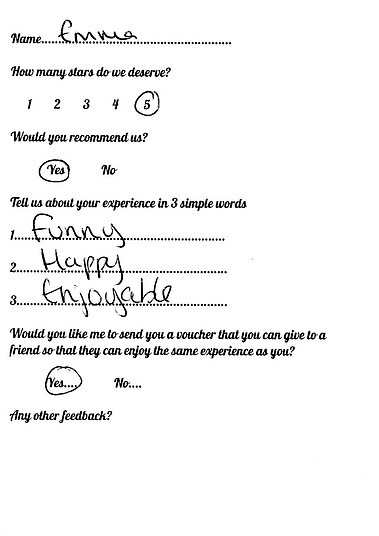 Name.....Emma.....
How many stars do we deserve?
1 2 3 4 5
Would you recommend us?
Yes No
Tell us about your experience in 3 simple words
1.....Funny.....
2.....Happy.....
3.....Enjoyable.....
Would you like me to send you a voucher that you can give to a
friend so that they can enjoy the same experience as you?
Yes.... No....
Any other feedback?